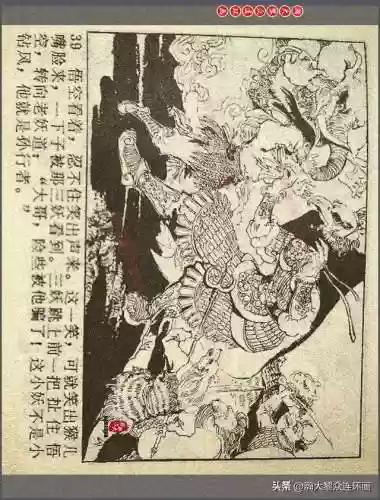 39 悟空看着，忍不住笑出声来。这一笑，可就笑出猴儿
嘴脸来，一下子被那三妖看到。三妖跳上前一把扯住悟
空，转向老妖道：“大哥，险些被他骗了！这小妖不是小
钻风，他就是孙行者。”
头条 @瀚大黎众连环画